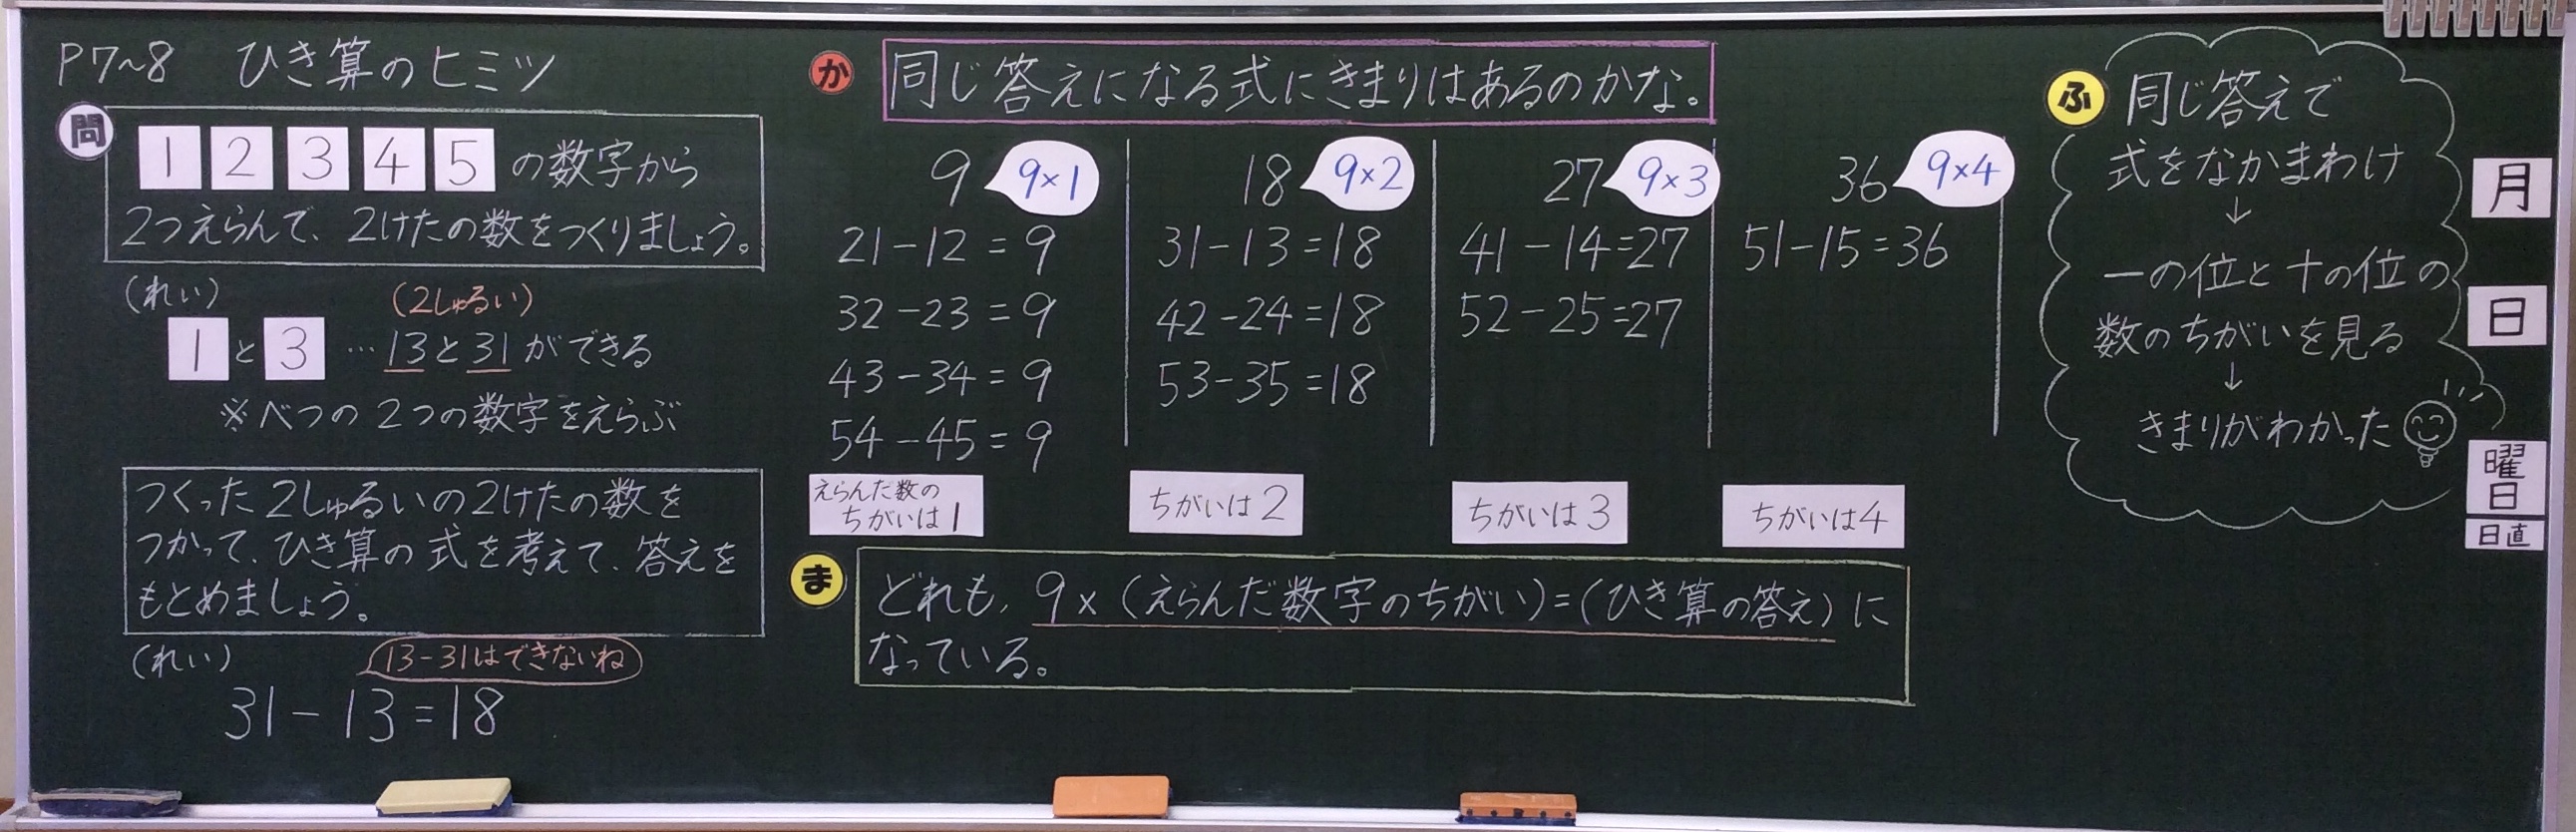 P7~8 ひき算のヒミツ
問
1 2 3 4 5 の数字から
2つえらんで、2けたの数をつくりましょう。
(れい) (2しゅるい)
1 と 3 …13と31ができる
※べつの2つの数字をえらぶ
つくった2しゅるいの2けたの数を
つかって、ひき算の式を考えて、答えを
もとめましょう。
(れい) 13-31はできないね
31-13=18
か 同じ答えになる式にきまりはあるのかな。
9 9×1
21-12=9
32-23=9
43-34=9
54-45=9
えらんだ数の
ちがいは1
18 9×2
31-13=18
42-24=18
53-35=18
ちがいは2
27 9×3
41-14=27
52-25=27
ちがいは3
36 9×4
51-15=36
ちがいは4
ま どれも、9×(えらんだ数字のちがい)=(ひき算の答え)に
なっている。
ふ 同じ答えで
式をなかまわけ
↓
一の位と十の位の
数のちがいを見る
↓
きまりがわかった
月
日
曜日
日直